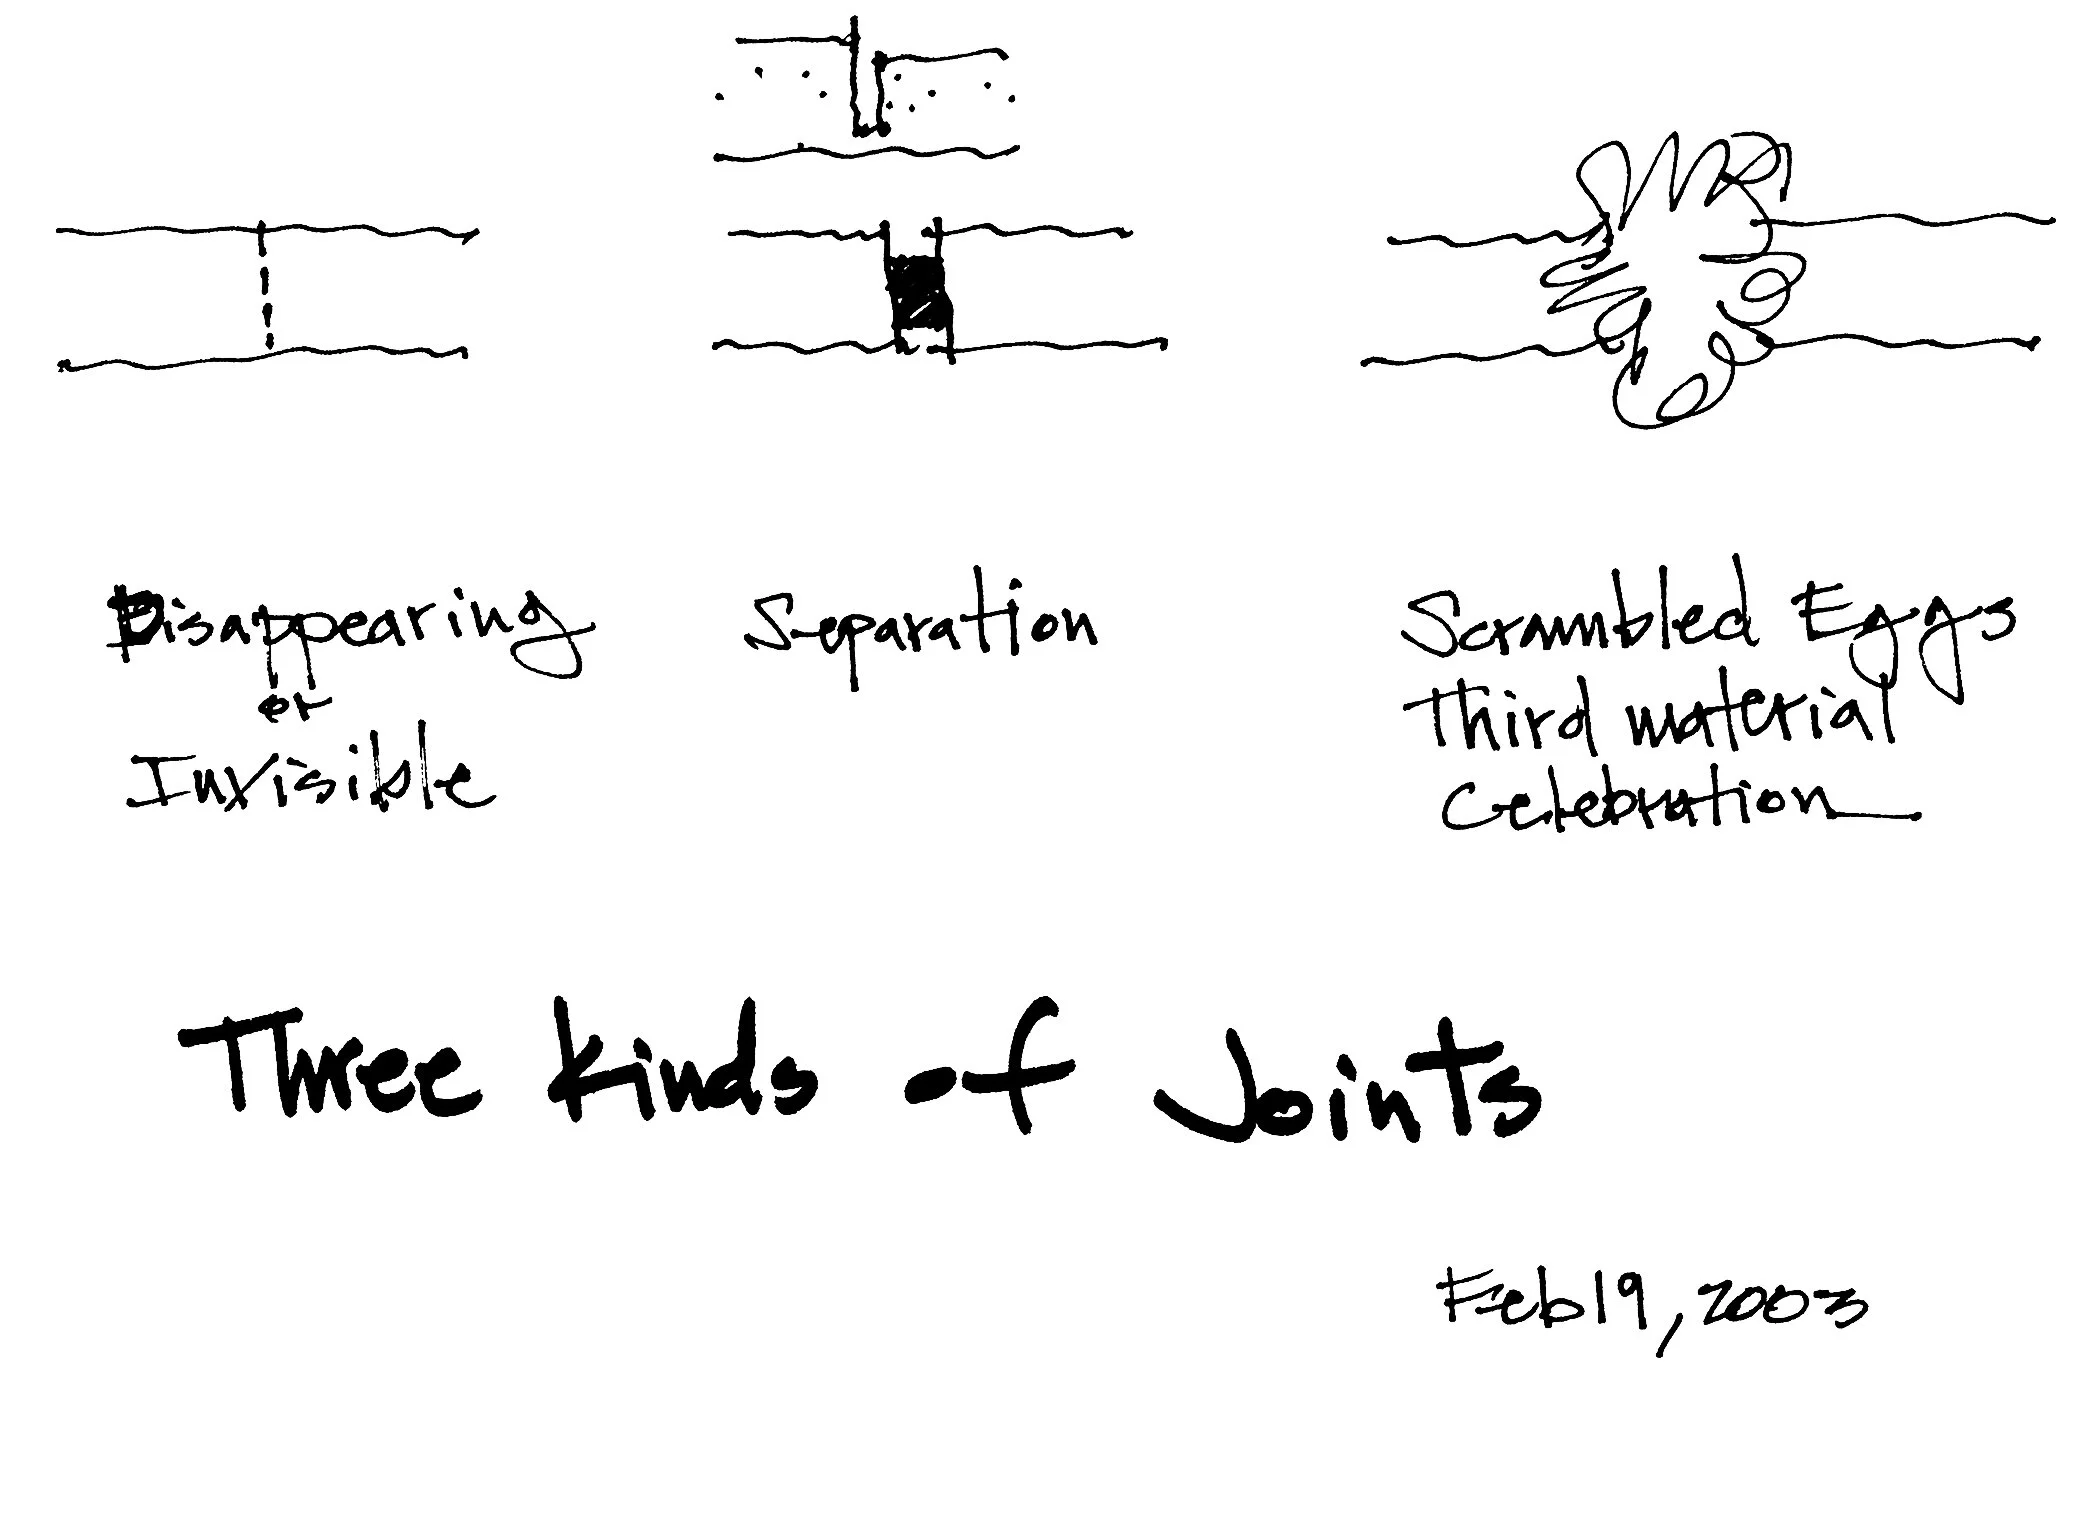 Disappearing
or
Invisible
Separation
Scrambled Eggs
Third material
Celebration
Three Kinds of Joints
Feb 19, 2003